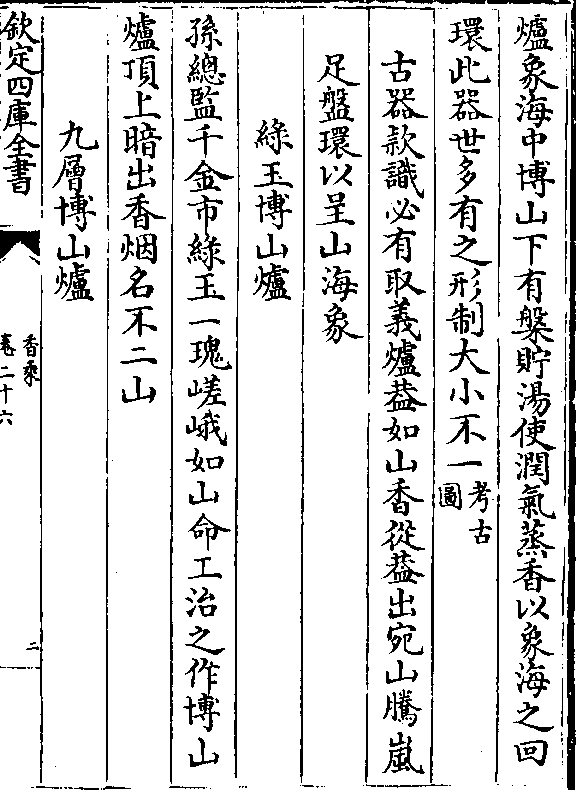 爐象海中博山下有槃貯湯使潤氣蒸香以象海之回
環此器世多有之形制大小不一考古圖
古器款識必有取義爐葢如山香從葢出宛山騰嵐
足盤環以呈山海象
綠玉博山爐
孫總監千金市綠玉一瑰嵯峨如山命工治之作博山
爐頂上暗出香烟名不二山
九層博山爐
欽定四庫全書
香乘
卷二十六
二